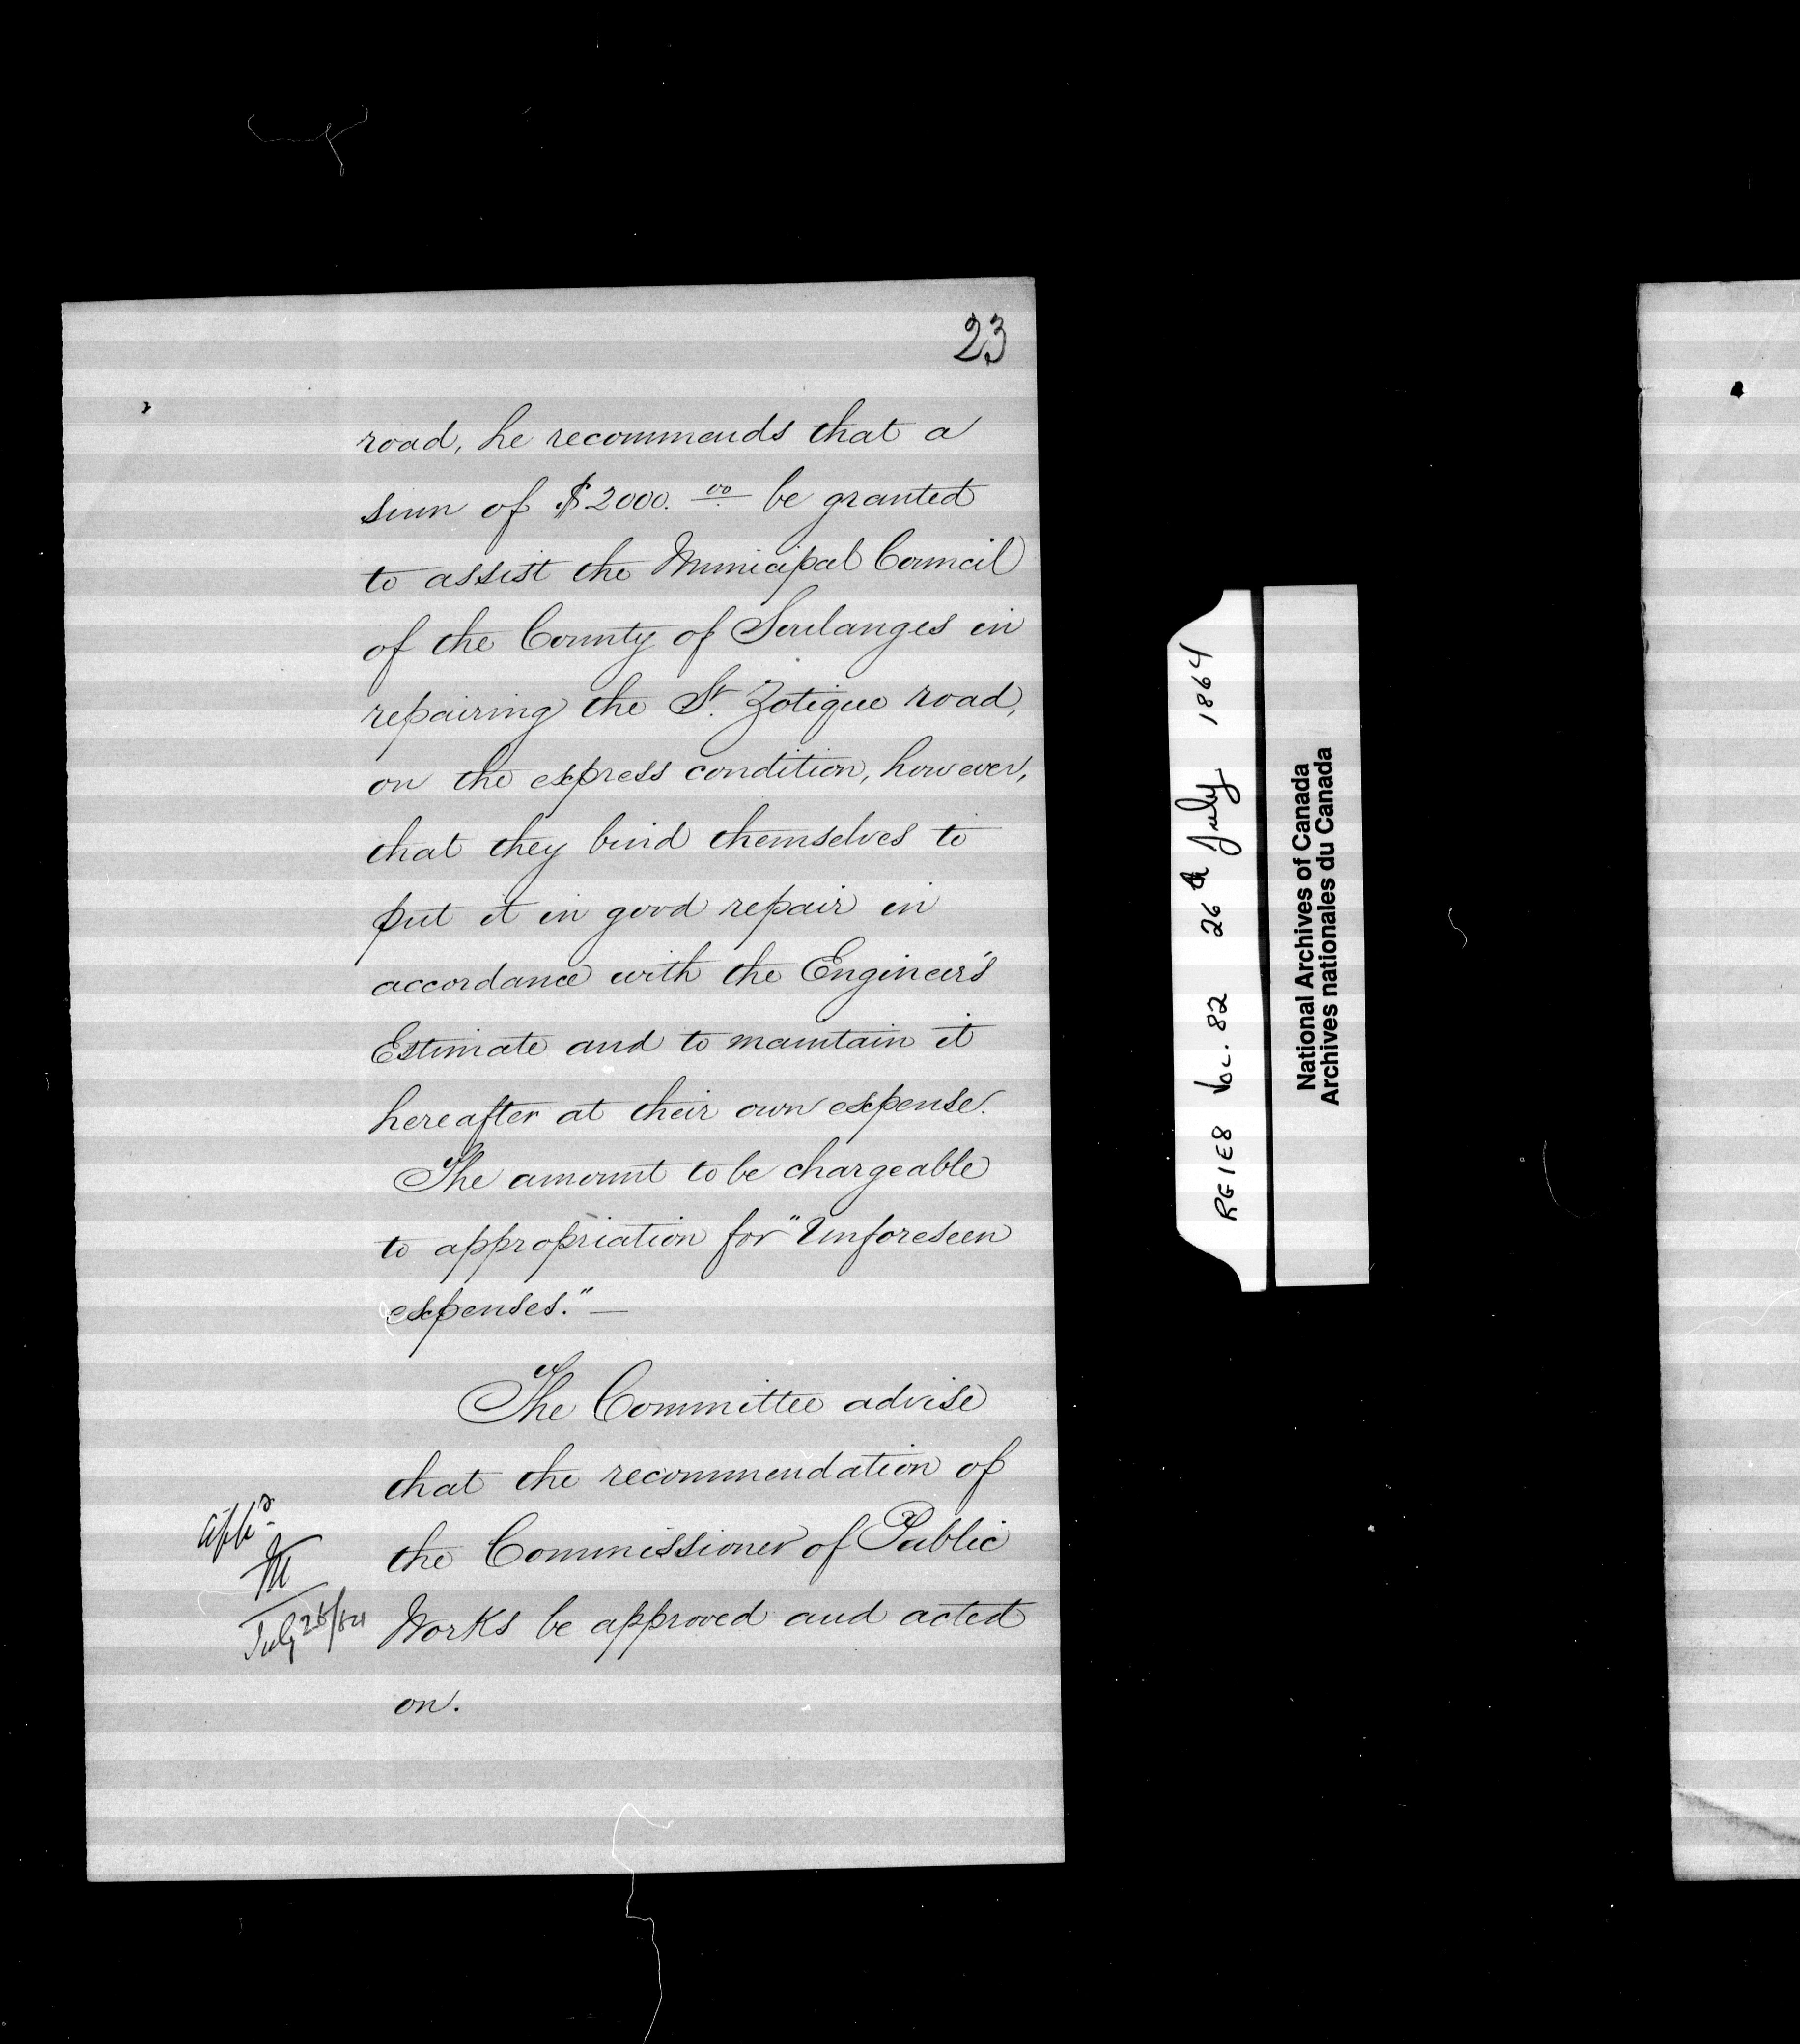 23
road, he recommends that a
sum of $2000.00 be granted
to assist the Municipal Council
of the County of Soulanges in
repairing the St. Zotique road,
on the express condition, however,
that they bind themselves to
put it in good repair in
accordance with the Engineer's
Estimate and to maintain it
hereafter at their own expense.
The amount to be chargeable
to appropriation for "Unforeseen
expenses." —
The Committee advise
that the recommendation of
the Commissioner of Public
Works be approved and acted
on.
App'd
M
July 26/64
RG1E8 Vol. 82 26th July 1864
National Archives of Canada
Archives nationales du Canada